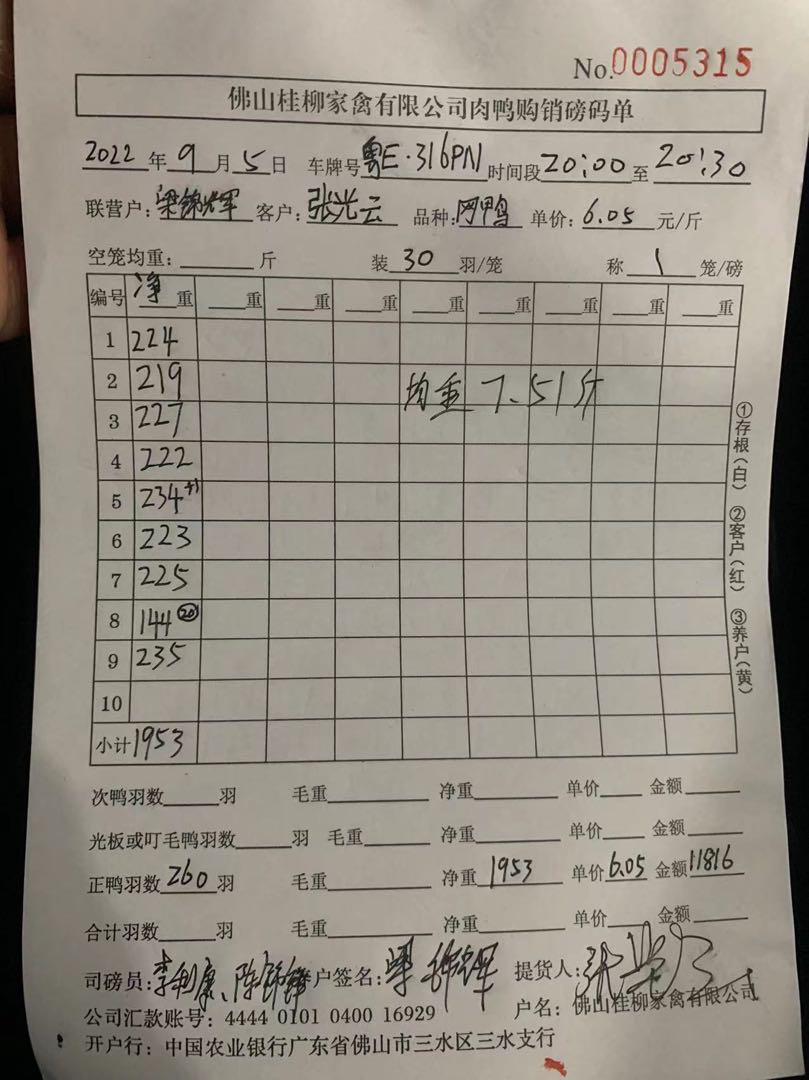 No.0005315
佛山桂柳家禽有限公司肉鸭购销磅码单
2022年9月5日 车牌号粤E·316PN 时间段20:00至20:30
联营户:梁锦辉 客户:张光云 品种:网鸭 单价:6.05元/斤
空笼均重:______斤 装30羽/笼 称1笼/磅
编号 净重 ___重 ___重 ___重 ___重 ___重 ___重 ___重 ___重
1 224
2 219 均重 7.51斤
3 227
4 222
5 234+1
6 223
7 225
8 144⑳
9 235
10
小计 1953
①存根(白) ②客户(红) ③养户(黄)
次鸭羽数____羽 毛重____ 净重____ 单价____ 金额____
光板或叮毛鸭羽数____羽 毛重____ 净重____ 单价____ 金额____
正鸭羽数260羽 毛重____ 净重1953 单价6.05 金额11816
合计羽数____羽 毛重____ 净重____ 单价____ 金额____
司磅员:李利康、陈锦锋 户签名:梁锦辉 提货人:张
公司汇款账号:4444 0101 0400 16929 户名:佛山桂柳家禽有限公司
开户行:中国农业银行广东省佛山市三水区三水支行